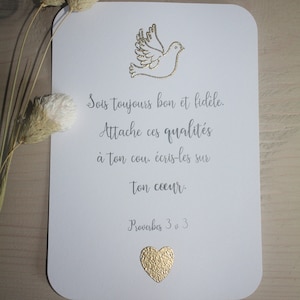 Sois toujours bon et fidèle.
Attache ces qualités
à ton cou, écris-les sur
ton cœur.
Proverbes 3 v 3